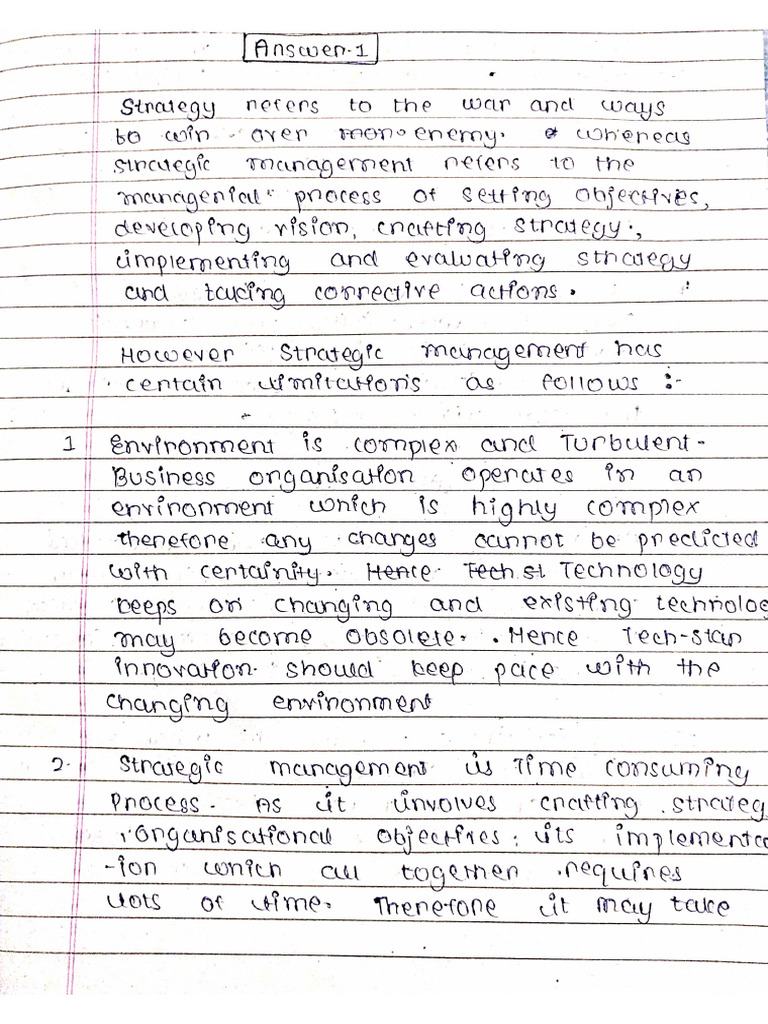 Answer-1
Strategy refers to the war and ways
to win over enemy. whereas
strategic management refers to the
managerial process of setting objectives,
developing vision, crafting strategy,
implementing and evaluating strategy
and taking corrective actions.
However Strategic management has
certain limitations as follows :-
1 Environment is complex and Turbulent-
Business organisation operates in an
environment which is highly complex
therefore any changes cannot be predicted
with certainity. Hence Tech st Technology
keeps on changing and existing technolog
may become obsolete. Hence Tech-star
innovation should keep pace with the
changing environment
2. Strategic management is Time consuming
Process. As it involves crafting strateg
organisational objectives, its implementa
-ion which all together requires
lots of time. Therefore it may take